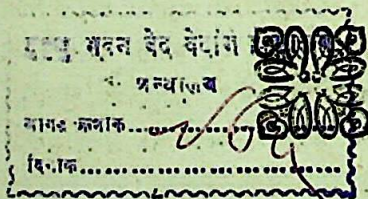 मुमुक्षु भवन वेद वेदांग
ग्रन्थालय
आगत क्रमांक......
दिनांक......